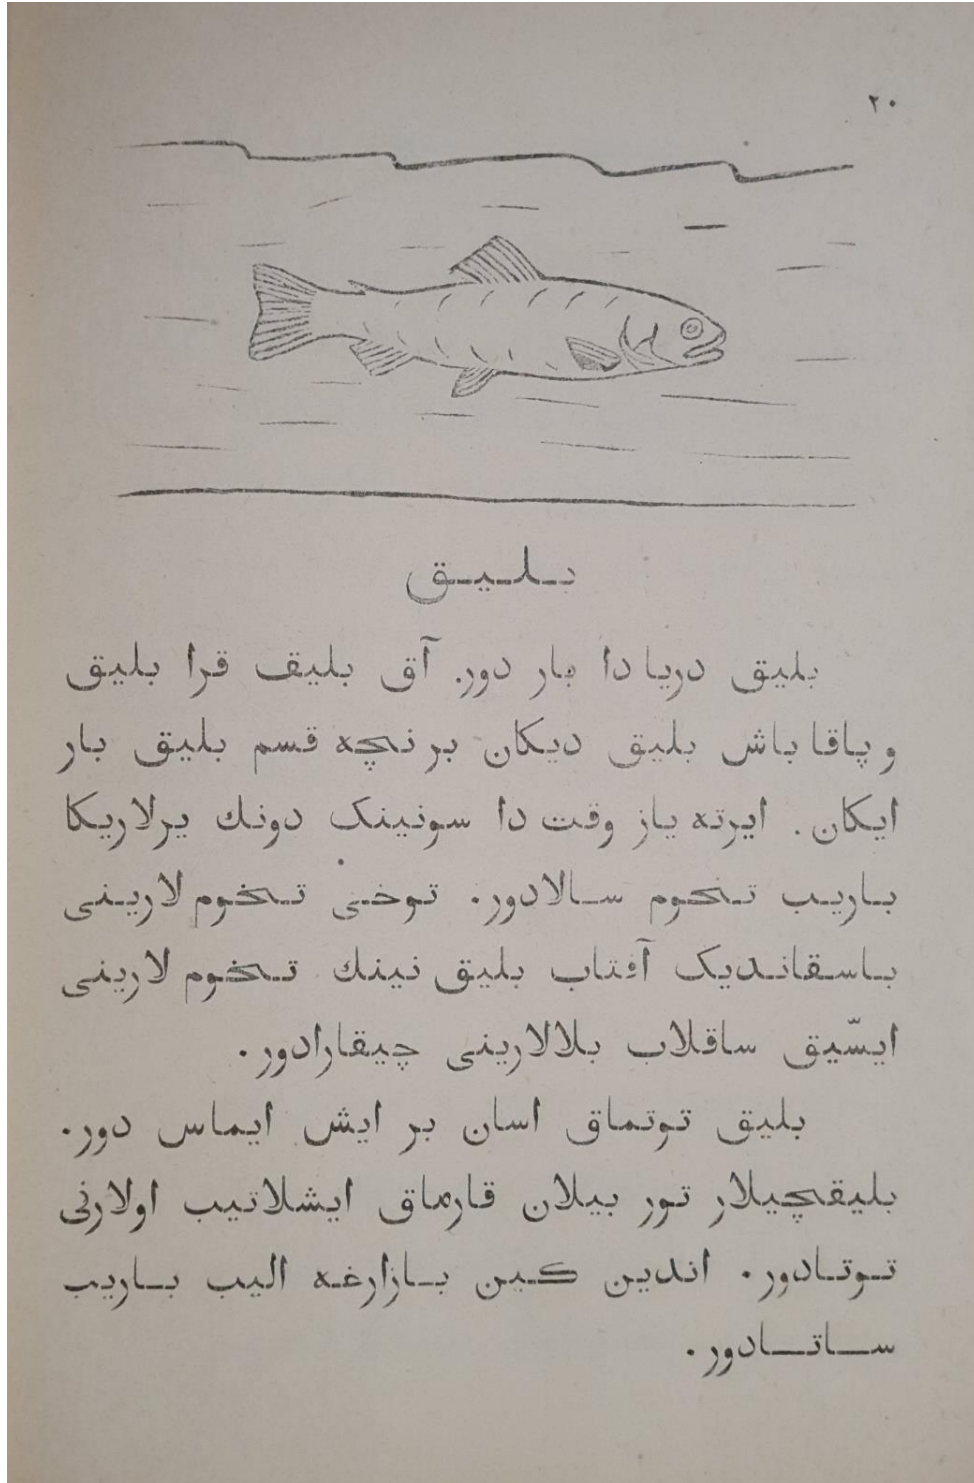 ٢٠
بليق
بليق دريا دا بار دور. آق بليق قرا بليق
و پاقا باش بليق ديكان بر نچه قسم بليق بار
ايكان. ايرته ياز وقت دا سونينک دونك يرلاريكا
باريب تخوم سالادور. توخى تخوم لارينى
باسقانديک آفتاب بليق نينك تخوم لارينى
ايسّيق ساقلاب بلالارينى چيقارادور.
بليق توتماق اسان بر ايش ايماس دور.
بليقچيلار تور بيلان قارماق ايشلاتيب اولارنى
توتادور. اندين كين بازارغه اليب باريب
ساتادور.